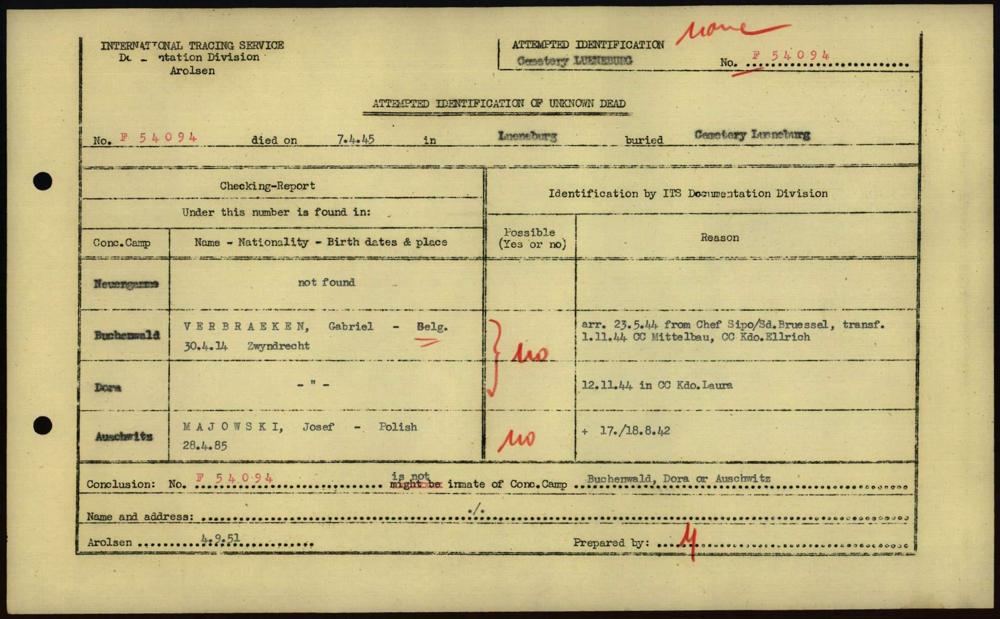 none
INTERNATIONAL TRACING SERVICE
ntation Division
Arolsen
ATTEMPTED IDENTIFICATION
Cemetery LUENEBURG
No. F 54094
ATTEMPTED IDENTIFICATION OF UNKNOWN DEAD
No. F 54094 died on 7.4.45 in Lueneburg buried Cemetery Lueneburg
Checking-Report
Identification by ITS Documentation Division
Under this number is found in:
Conc.Camp
Name - Nationality - Birth dates & place
Possible
(Yes or no)
Reason
Neuengamme
not found
Buchenwald
VERBRAEKEN, Gabriel - Belg.
30.4.14 Zwyndrecht
no
arr. 23.5.44 from Chef Sipo/Sd.Bruessel, transf.
1.11.44 CC Mittelbau, CC Kdo.Ellrich
Dora
- " -
12.11.44 in CC Kdo.Laura
Auschwitz
MAJOWSKI, Josef - Polish
28.4.85
no
+ 17./18.8.42
Conclusion: No. F 54094 is not might be inmate of Conc.Camp Buchenwald, Dora or Auschwitz
Name and address: ./.
Arolsen 4.9.51 Prepared by: